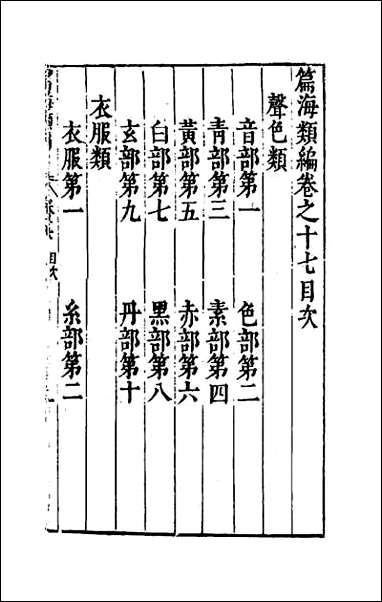 篇海類編卷之十七目次
聲色類
音部第一 色部第二
靑部第三 素部第四
黃部第五 赤部第六
白部第七 黑部第八
玄部第九 丹部第十
衣服類
衣服第一 糸部第二
目次